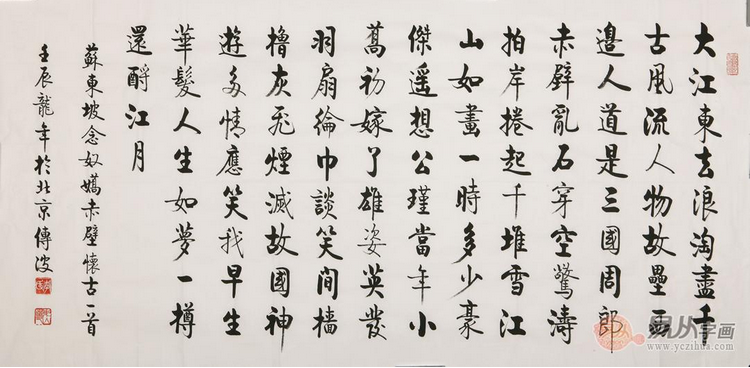 大江東去浪淘盡千
古風流人物故壘西
邊人道是三國周郎
赤壁亂石穿空驚濤
拍岸捲起千堆雪江
山如畫一時多少豪
傑遥想公瑾當年小
喬初嫁了雄姿英發
羽扇綸巾談笑間檣
櫓灰飛煙滅故國神
遊多情應笑我早生
華髮人生如夢一樽
還酹江月
蘇東坡念奴嬌赤壁懷古一首
壬辰龍年於北京傳波
易从字画
www.yczihua.com